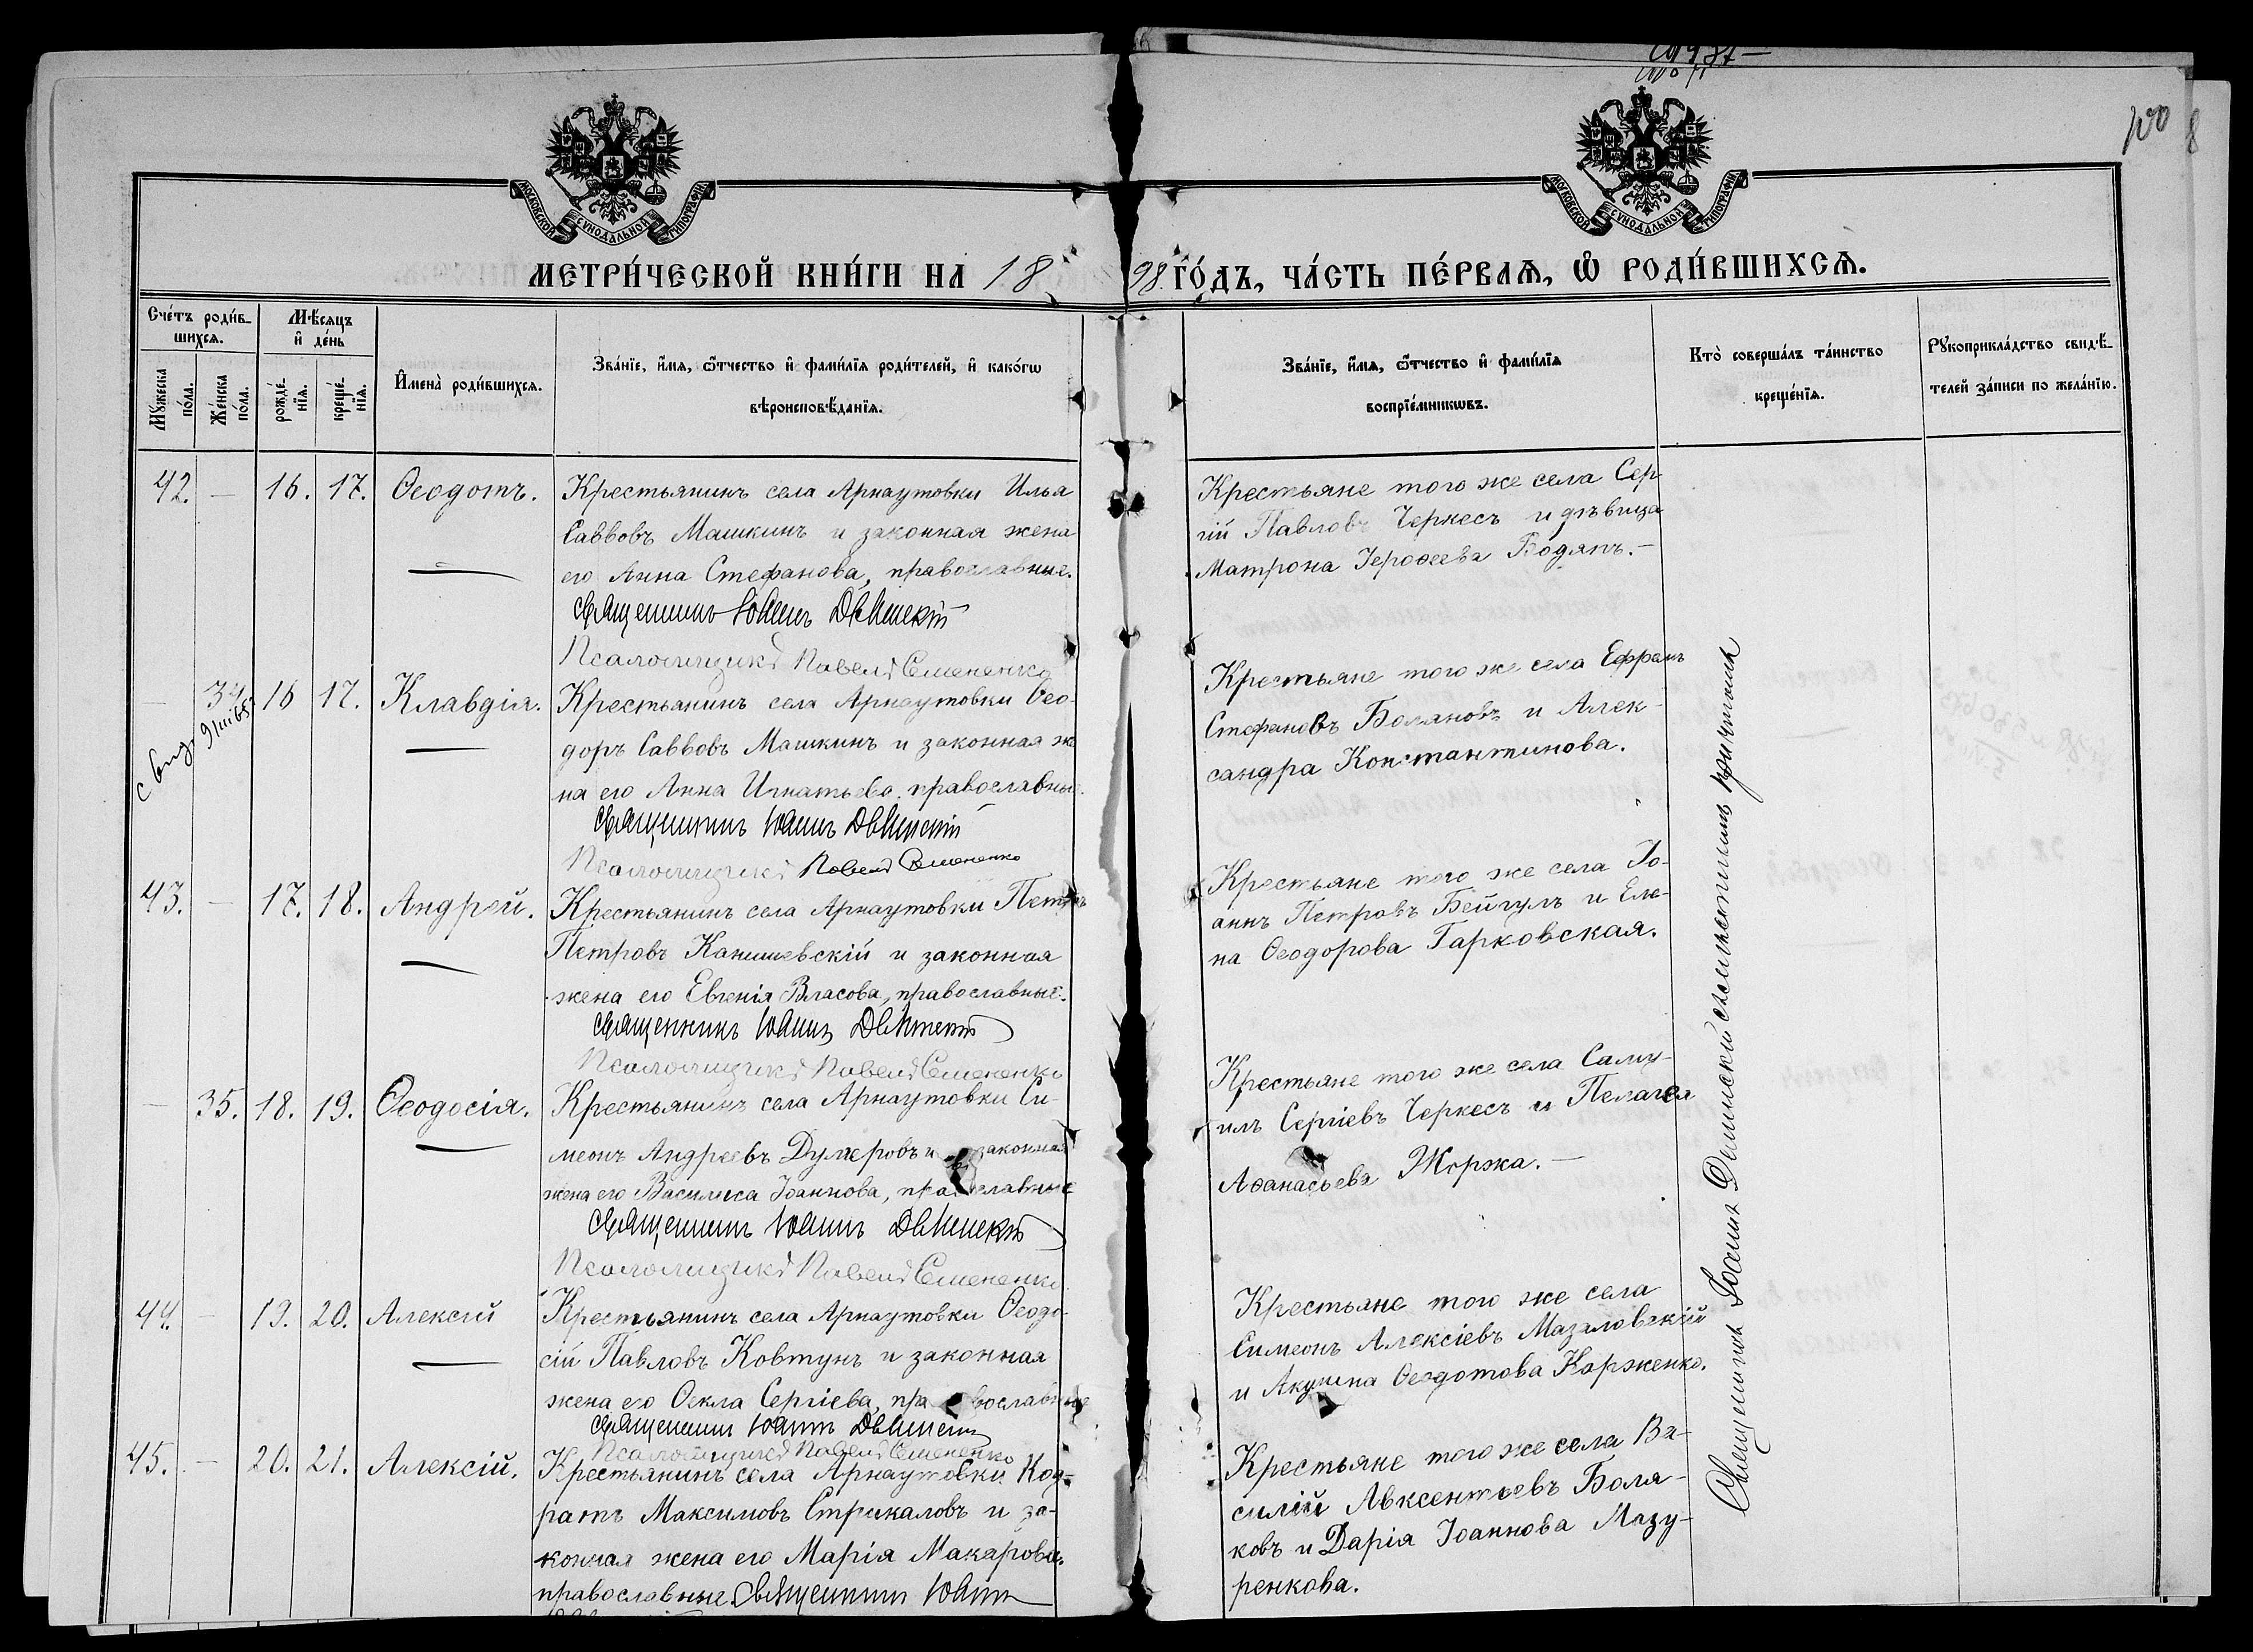 МОСКОВСКОЙ СѴНОДАЛЬНОЙ ТИПОГРАФІИ
МОСКОВСКОЙ СѴНОДАЛЬНОЙ ТИПОГРАФІИ
МЕТРИ́ЧЕСКОЙ КНИ́ГИ НА 1898 ГО́ДЪ, ЧА́СТЬ ПЕ́РВАѦ, Ѡ҆ РОДИ́ВШИХСѦ.
Сче́тъ роди́в-
шихсѧ.
Мѣ́сѧцъ
и҆ де́нь
Мꙋ́жеска
по́ла.
Же́нска
по́ла.
рожде́-
нїѧ.
креще́-
нїѧ.
И҆мена̀ роди́вшихсѧ.
Зва́нїе, и҆́мѧ, ѻ҆́тчество и҆ фами́лїѧ роди́телей, и҆ како́гѡ
вѣроисповѣ́данїѧ.
Зва́нїе, и҆́мѧ, ѻ҆́тчество и҆ фами́лїѧ
воспрїе́мникѡвъ.
Кто̀ соверша́лъ та́инство
креще́нїѧ.
Рꙋкоприкла́дство свидѣ́-
телей за́писи по жела́нїю.
42. — 16. 17. Ѳеодотъ.
Крестьянинъ села Арнаутовки Илья
Саввовъ Машкинъ и законная жена
его Анна Стефанова, православные.
Священникъ Іоаннъ Двинскій
Псаломщикъ Павелъ Семененко
Крестьяне того же села Сер-
гій Павловъ Черкесъ и дѣвица
Матрона Іероѳеева Бодянъ.—
— 34. 16 17. Клавдія.
Крестьянинъ села Арнаутовки Ѳео-
доръ Саввовъ Машкинъ и законная же-
на его Анна Игнатьева, православные.
Священникъ Іоаннъ Двинскій
Псаломщикъ Павелъ Семененко
Крестьяне того же села Ефрамъ
Стефановъ Боляновъ и Алек-
сандра Константинова.
43. — 17. 18. Андрей.
Крестьянинъ села Арнаутовки Петръ
Петровъ Канишевскій и законная
жена его Евгенія Власова, православные.
Священникъ Іоаннъ Двинскій
Псаломщикъ Павелъ Семененко
Крестьяне того же села Іо-
аннъ Петровъ Бейгулъ и Еле-
на Ѳеодорова Гарковская.
— 35. 18. 19. Ѳеодосія.
Крестьянинъ села Арнаутовки Си-
меонъ Андреевъ Думеровъ и законная
жена его Василиса Іоаннова, православные
Священникъ Іоаннъ Двинскій
Псаломщикъ Павелъ Семененко
Крестьяне того же села Саму-
илъ Сергіевъ Черкесъ и Пелагея
Аѳанасьева Жоржа.—
44. — 19. 20. Алексій
Крестьянинъ села Арнаутовки Ѳеодо-
сій Павловъ Ковтунъ и законная
жена его Ѳекла Сергіева, православные
Священникъ Іоаннъ Двинскій
Псаломщикъ Павелъ Семененко
Крестьяне того же села
Симеонъ Алексіевъ Мазаловскій
и Акулина Ѳеодотова Корженко.
45. — 20. 21. Алексій.
Крестьянинъ села Арнаутовки Код-
ратъ Максимовъ Стрикаловъ и за-
конная жена его Марія Макарова,
православные. Священникъ Іоаннъ
Крестьяне того же села Ва-
силій Авксентьевъ Боля-
ковъ и Дарія Іоаннова Мазу-
ренкова.
Священникъ Іоаннъ Двинскій